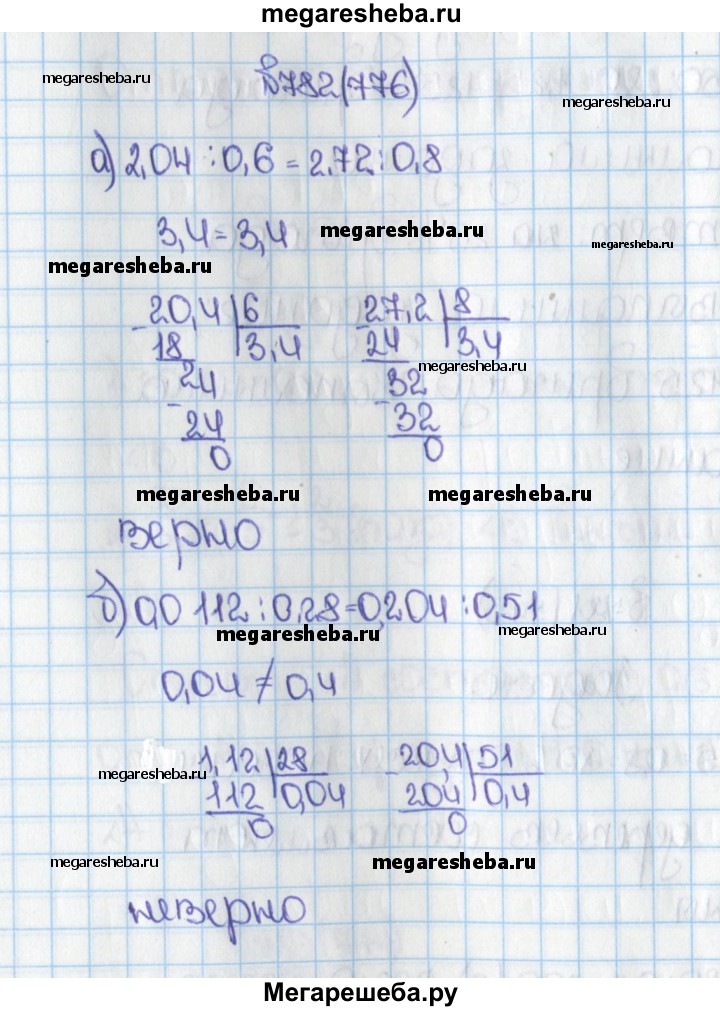 megaresheba.ru
№782(776)
megaresheba.ru
megaresheba.ru
а) 2,04 : 0,6 = 2,72 : 0,8
3,4 = 3,4
megaresheba.ru
megaresheba.ru
megaresheba.ru
20,4 | 6
- 18 | 3,4
24
- 24
0
27,2 | 8
- 24 | 3,4
megaresheba.ru
32
- 32
0
megaresheba.ru
megaresheba.ru
верно
б) 0,0112 : 0,28 = 0,204 : 0,51
megaresheba.ru
megaresheba.ru
0,04 ≠ 0,4
1,12 | 28
megaresheba.ru
112 | 0,04
0
- 20,4 | 51
204 | 0,4
0
megaresheba.ru
megaresheba.ru
неверно
megaresheba.ru
megaresheba.ru
Мегарешеба.ру